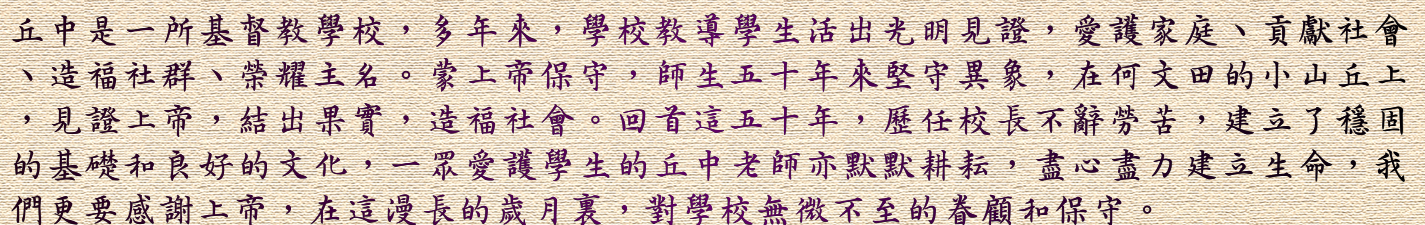 丘中是一所基督教學校，多年來，學校教導學生活出光明見證，愛護家庭、貢獻社會
、造福社群、榮耀主名。蒙上帝保守，師生五十年來堅守異象，在何文田的小山丘上
，見證上帝，結出果實，造福社會。回首這五十年，歷任校長不辭勞苦，建立了穩固
的基礎和良好的文化，一眾愛護學生的丘中老師亦默默耕耘，盡心盡力建立生命，我
們更要感謝上帝，在這漫長的歲月裏，對學校無微不至的眷顧和保守。